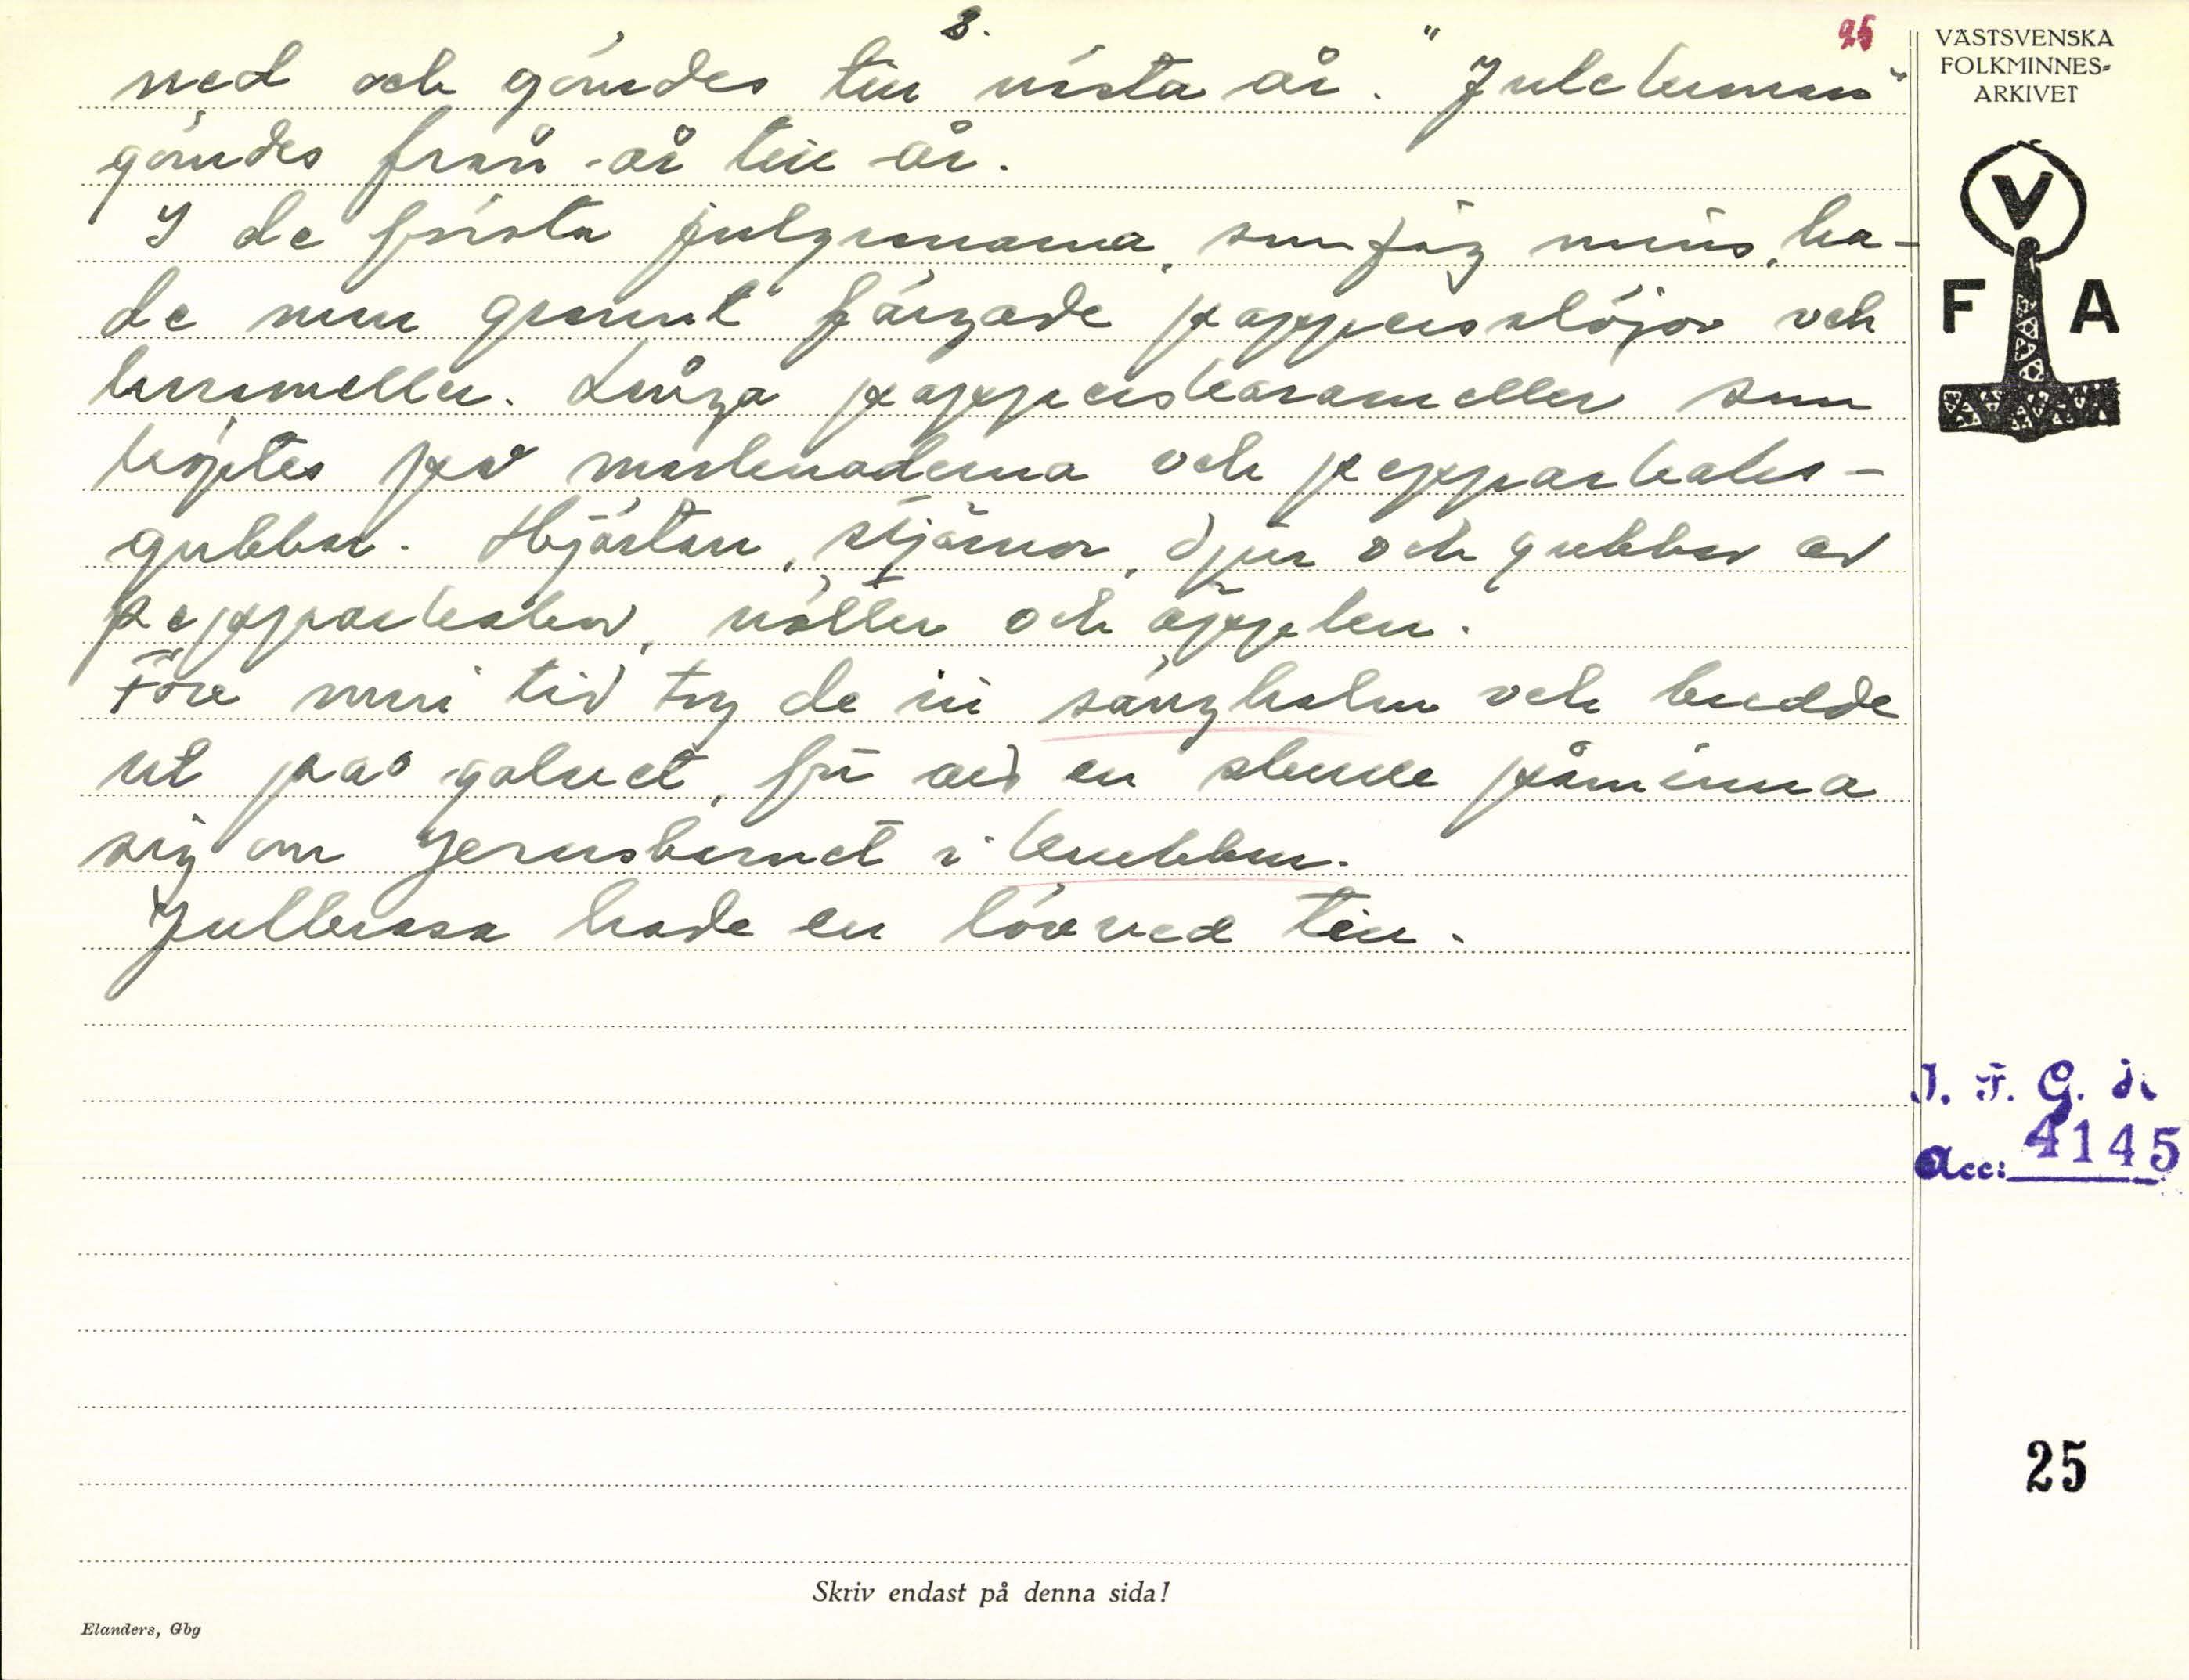 3.
25
ned och gömdes till nästa år. "Julebonan"
gömdes från år till år.
I de första julgranarna, som jag minns, ha-
de man grannt färgade pappersslöjor och
karameller. Långa papperskarameller som
köptes på marknaderna och pepparkaks-
gubbar. Hjärtan, stjärnor, djur och gubbar av
pepparkakor, nötter och äpplen.
Före min tid tog de in sänghalm och bredde
ut på golvet, för att en skulle påminna
sig om Jesusbarnet i krubban.
Julbrasa hade en lövved till.
VÄSTSVENSKA
FOLKMINNES-
ARKIVET
V
F A
I. F. G. H.
Acc: 4145
25
Skriv endast på denna sida!
Elanders, Gbg